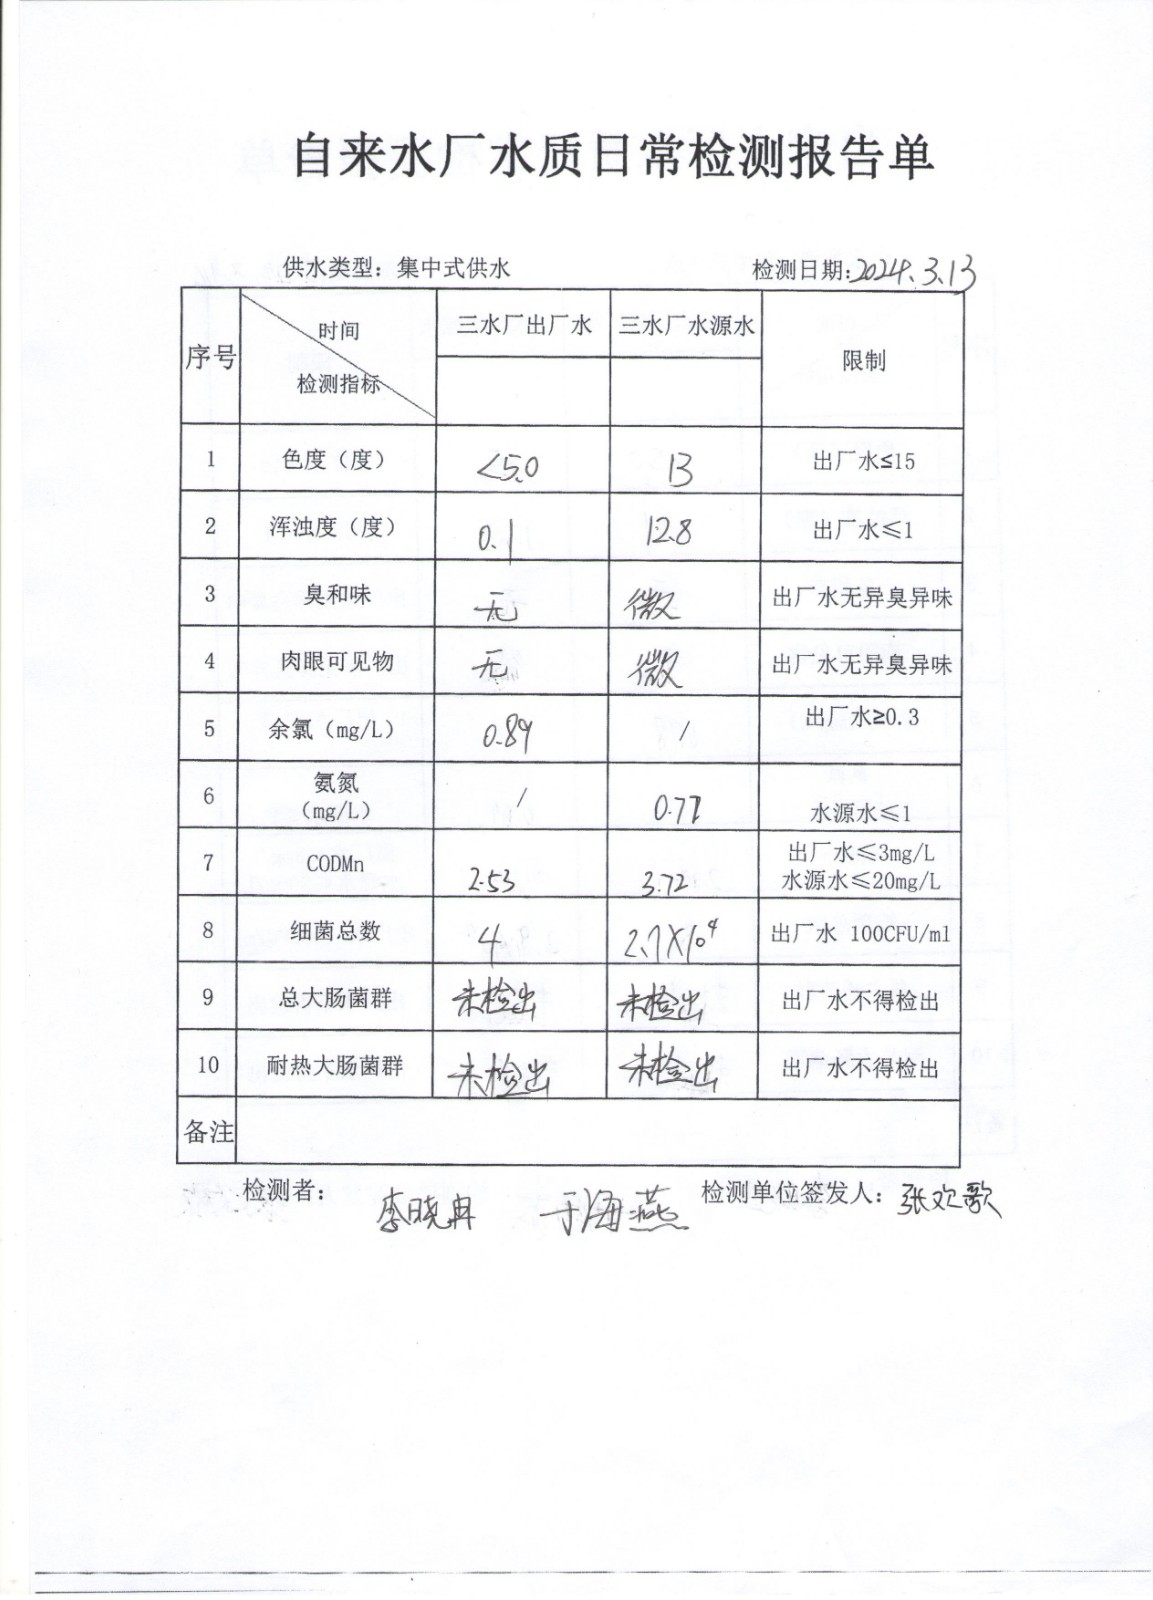 自来水厂水质日常检测报告单
供水类型：集中式供水 检测日期:2024.3.13
序号 时间 检测指标 三水厂出厂水 三水厂水源水 限制
1 色度（度） <5.0 13 出厂水≤15
2 浑浊度（度） 0.1 12.8 出厂水≤1
3 臭和味 无 微 出厂水无异臭异味
4 肉眼可见物 无 微 出厂水无异臭异味
5 余氯（mg/L） 0.89 / 出厂水≥0.3
6 氨氮 （mg/L） / 0.77 水源水≤1
7 CODMn 2.53 3.72 出厂水≤3mg/L
水源水≤20mg/L
8 细菌总数 4 2.7X10⁴ 出厂水 100CFU/ml
9 总大肠菌群 未检出 未检出 出厂水不得检出
10 耐热大肠菌群 未检出 未检出 出厂水不得检出
备注
检测者： 李晓冉 于海燕 检测单位签发人：张欢歌